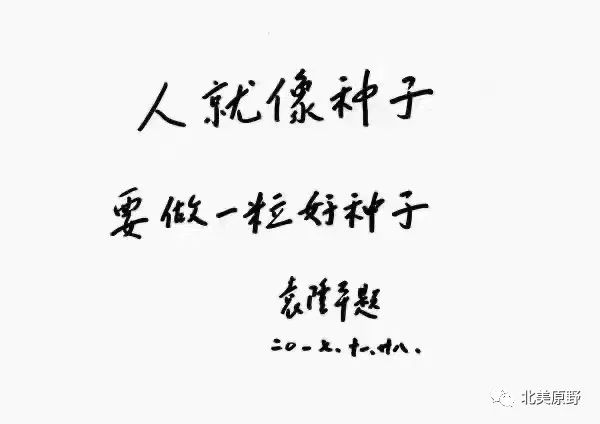 人就像种子
要做一粒好种子
袁隆平题
二〇一七.十一.廿八.
北美原野